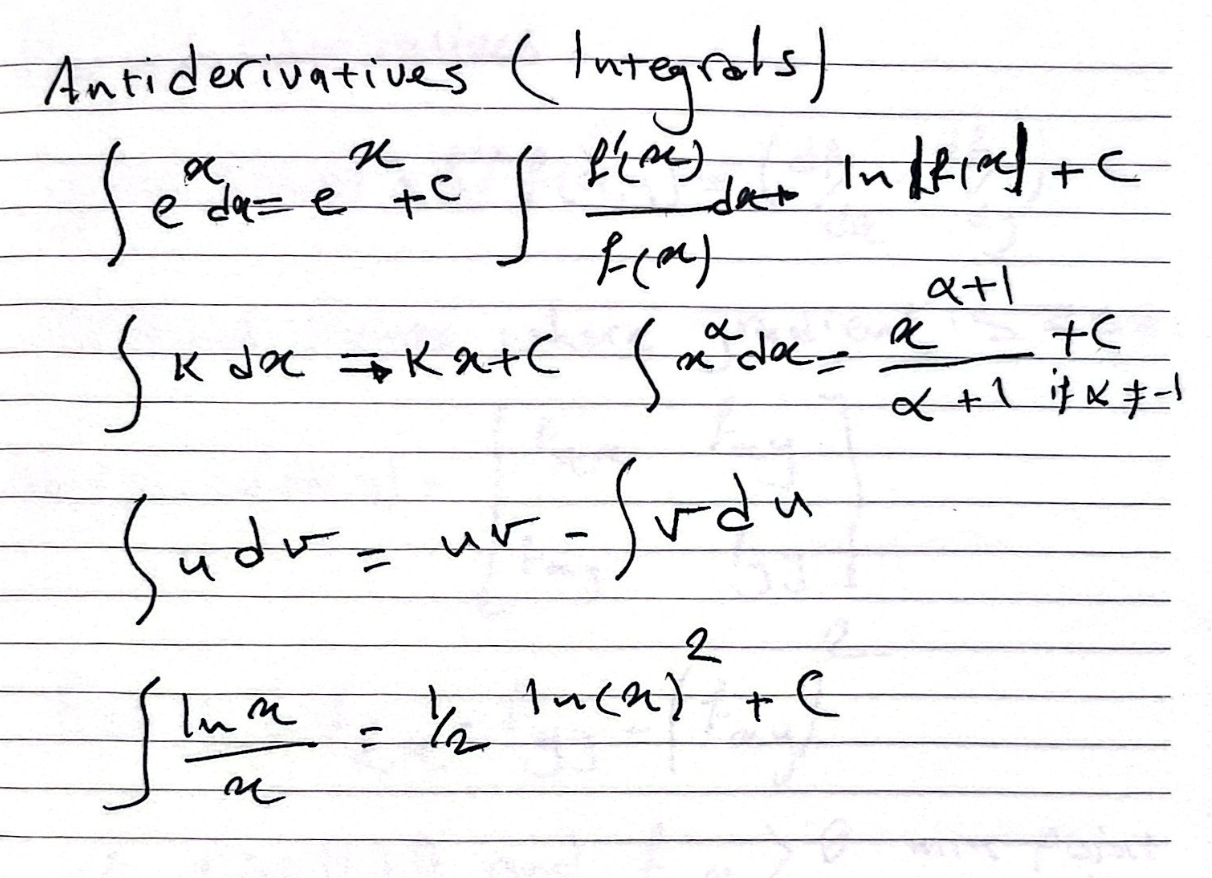 Antiderivatives (Integrals)
∫ e^x dx = e^x + C   ∫ f'(x)/f(x) dx = ln |f(x)| + C
∫ K dx = Kx + C   ∫ x^α dx = x^(α+1)/(α+1) + C if α ≠ -1
∫ u dv = uv - ∫ v du
∫ ln x / x = 1/2 ln(x)^2 + C